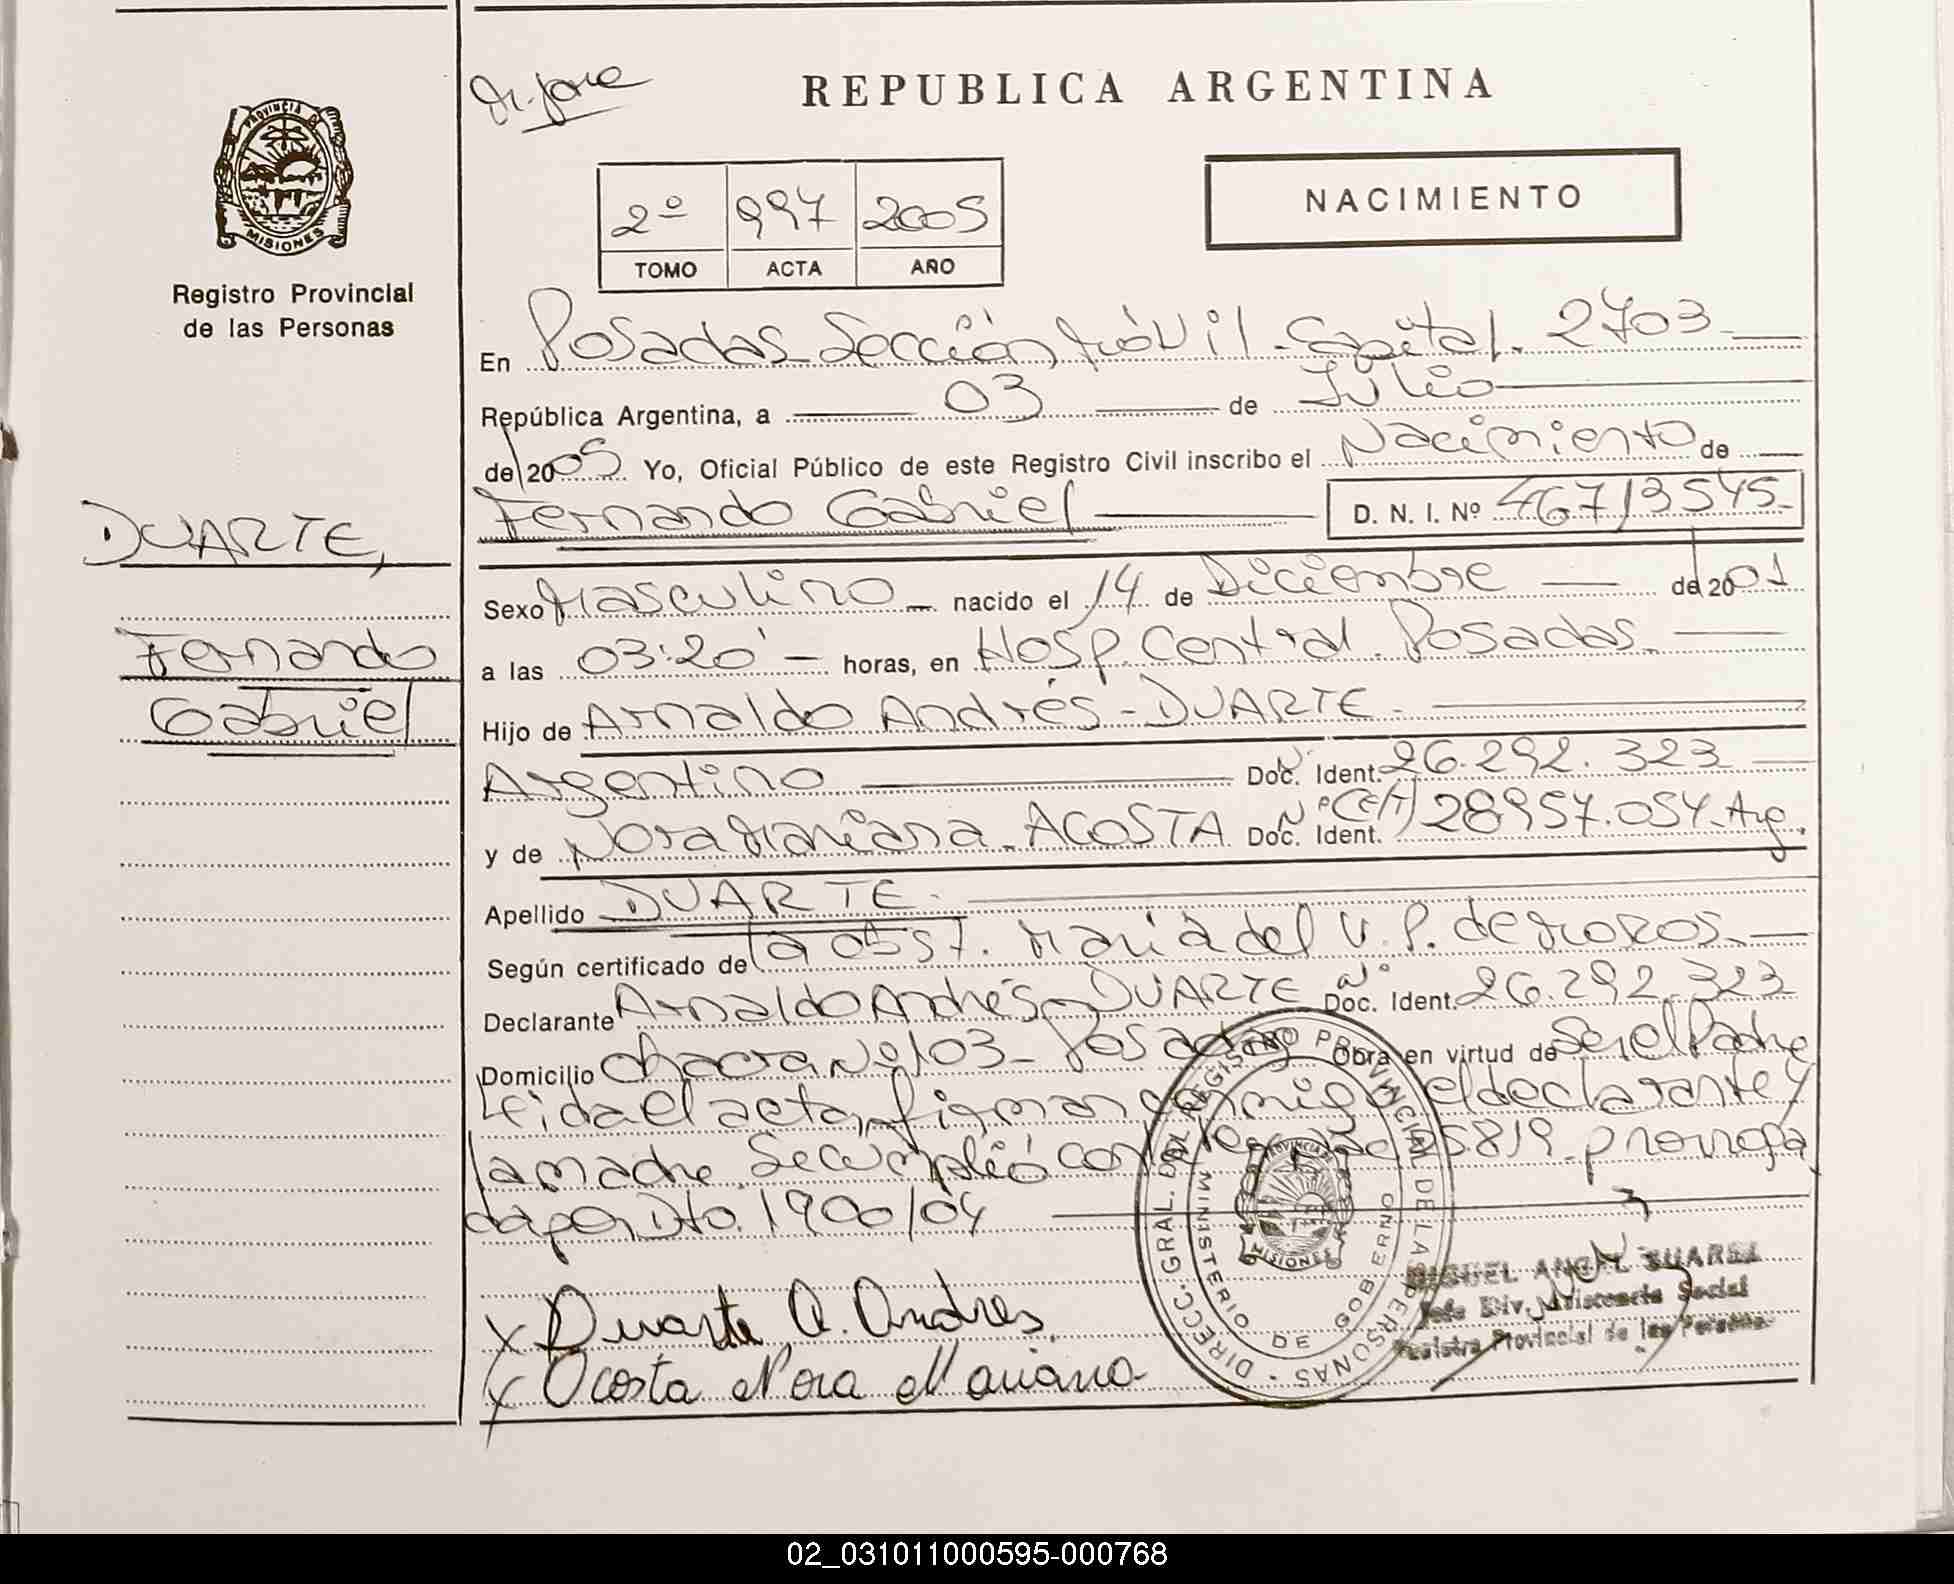 REPUBLICA ARGENTINA
PROVINCIA DE
MISIONES
Registro Provincial
de las Personas
2º 997 2005
TOMO ACTA AÑO
NACIMIENTO
En Posadas Sección Móvil - Capital. 2703
República Argentina, a 03 de Julio
de 2005 Yo, Oficial Público de este Registro Civil inscribo el Nacimiento de
Fernando Gabriel D. N. I. Nº 46713545-
DUARTE,
Fernando
Gabriel
Sexo Masculino nacido el 14 de Diciembre de 2001
a las 03:20' horas, en Hosp. Central. Posadas.
Hijo de Arnaldo Andrés - DUARTE.
Argentino Doc. Ident. Nº 26.292.323
y de Nora Mariana - ACOSTA Doc. Ident. Nº 28957.054. Arg.
Apellido DUARTE.
Según certificado de la obst. María del V. P. de
Declarante Arnaldo Andrés - DUARTE Nº Doc. Ident. 26.292.323
Domicilio chacra Nº 103 - Posadas Obra en virtud de Ser el Padre
Leida el acta, firman conmigo el declarante y
la madre. Se cumplió con 25819. prorroga
da por Dto. 1900/04
x Duarte A. Andres.
x Acosta Nora Mariana
DIRECC. GRAL. DEL REGISTRO PROVINCIAL DE LAS PERSONAS
MINISTERIO DE GOBIERNO
PROVINCIA
MISIONES
MIGUEL ANGEL SUAREZ
Jefe Div. Asistencia Social
Registro Provincial de las Personas
02_031011000595-000768